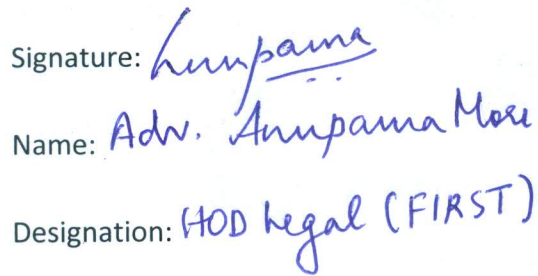 Signature: Anupama
Name: Adv. Anupama More
Designation: HOD Legal (FIRST)